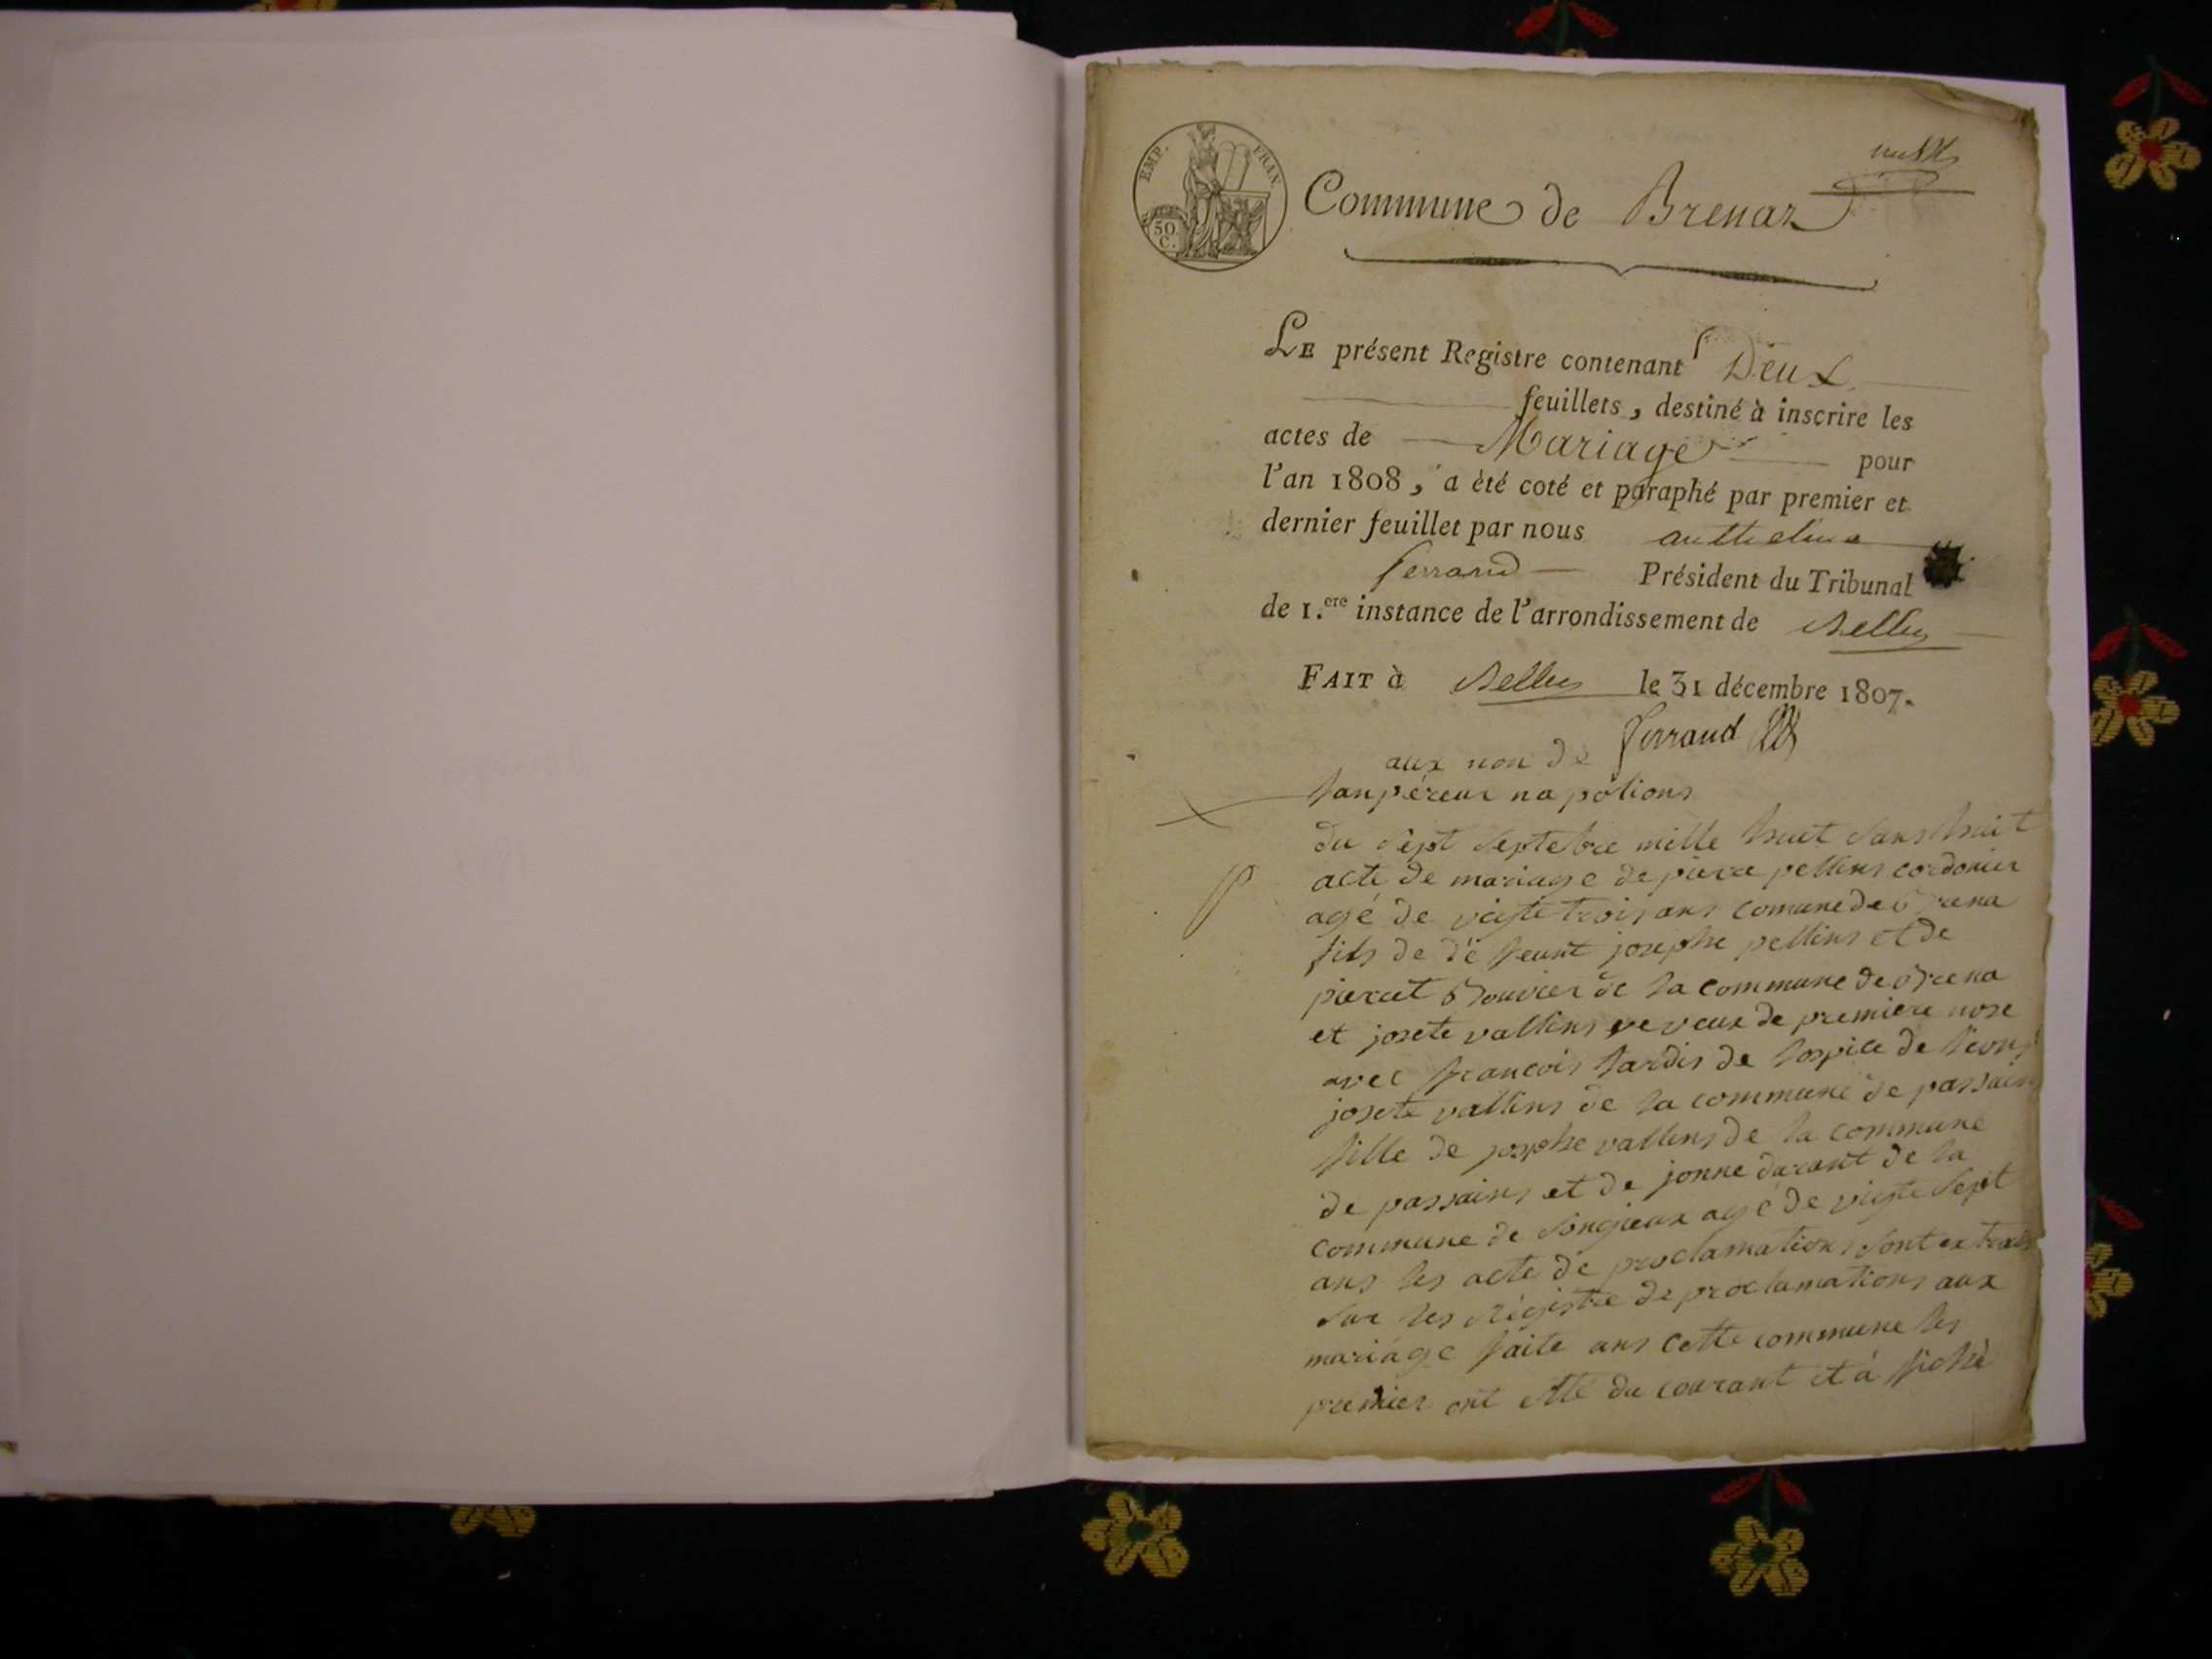 EMP. FRAN.
50
C.
Commune de Brenaz
LE présent Registre contenant Deux
feuillets, destiné à inscrire les
actes de Mariage pour
l'an 1808, a èté coté et paraphé par premier et
dernier feuillet par nous anthelme
ferrand Président du Tribunal
de 1.ere instance de l'arrondissement de Belley
FAIT à Belley le 31 décembre 1807.
ferrand
aux non de
lanpéreur napolions
du sept septebre mille huit sans huit
acte de mariage de piere pellins cordonier
agé de vigte trois ans comune de brena
fils de dé feunt josephe pellins et de
pieret bouvier de la commune de brena
et josete vallins veveux de première nose
avec francois hardis de hospice de
josete vallins de la commune de passains
fille de josephe vallins de la commune
de passains et de jonne durant de la
commune de songieux agé de vigte sept
ans les acte de proclamations sont extrais
sur les régistre de proclamations aux
mariage faite ans cette commune les
premier ont été du courant et a fiché